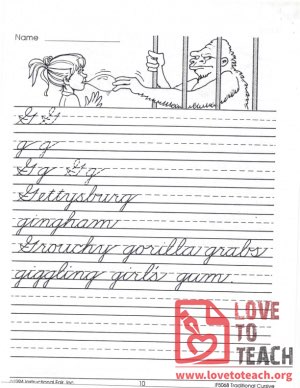 Name
G G
g g
Gg Gg
Gettysburg
gingham
Grouchy gorilla grabs
giggling girl's gum.
LOVE
TO
TEACH
www.lovetoteach.org
10
IF5068 Traditional Cursive